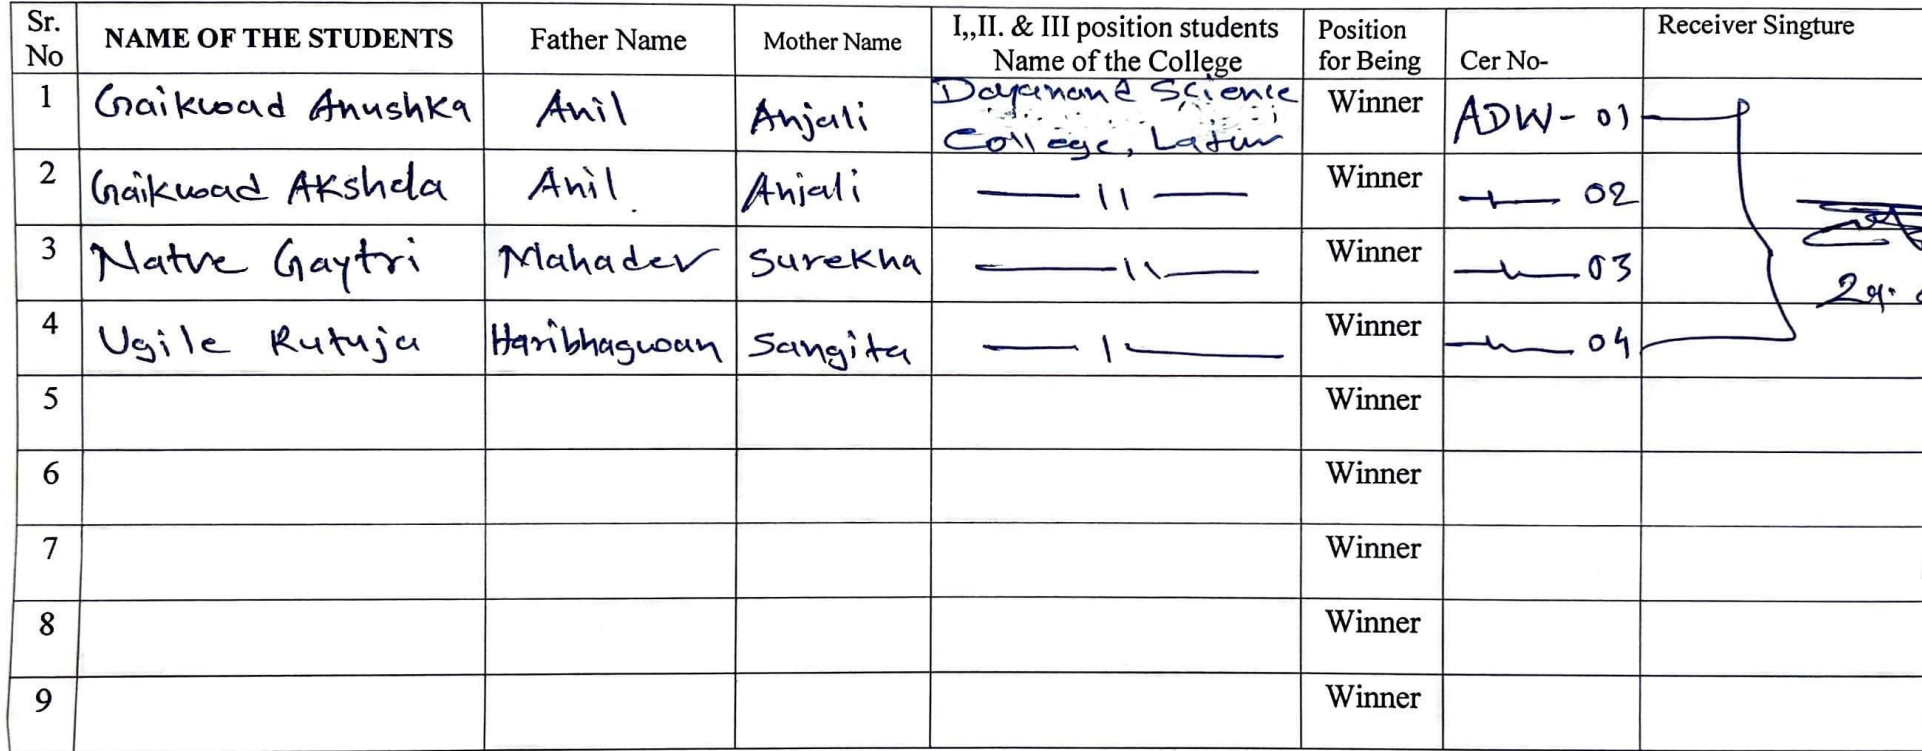 Sr. No NAME OF THE STUDENTS Father Name Mother Name I,,II. & III position students Name of the College Position for Being Cer No- Receiver Singture
1 Gaikwad Anushka Anil Anjali Dayanand Science College, Latur Winner ADW- 01
2 Gaikwad Akshda Anil Anjali —— 11 —— Winner —— 02
3 Natve Gaytri Mahadev Surekha —— 11 —— Winner —— 03
4 Ugile Rutuja Haribhagwan Sangita —— 1 —— Winner —— 04
5 Winner
6 Winner
7 Winner
8 Winner
9 Winner